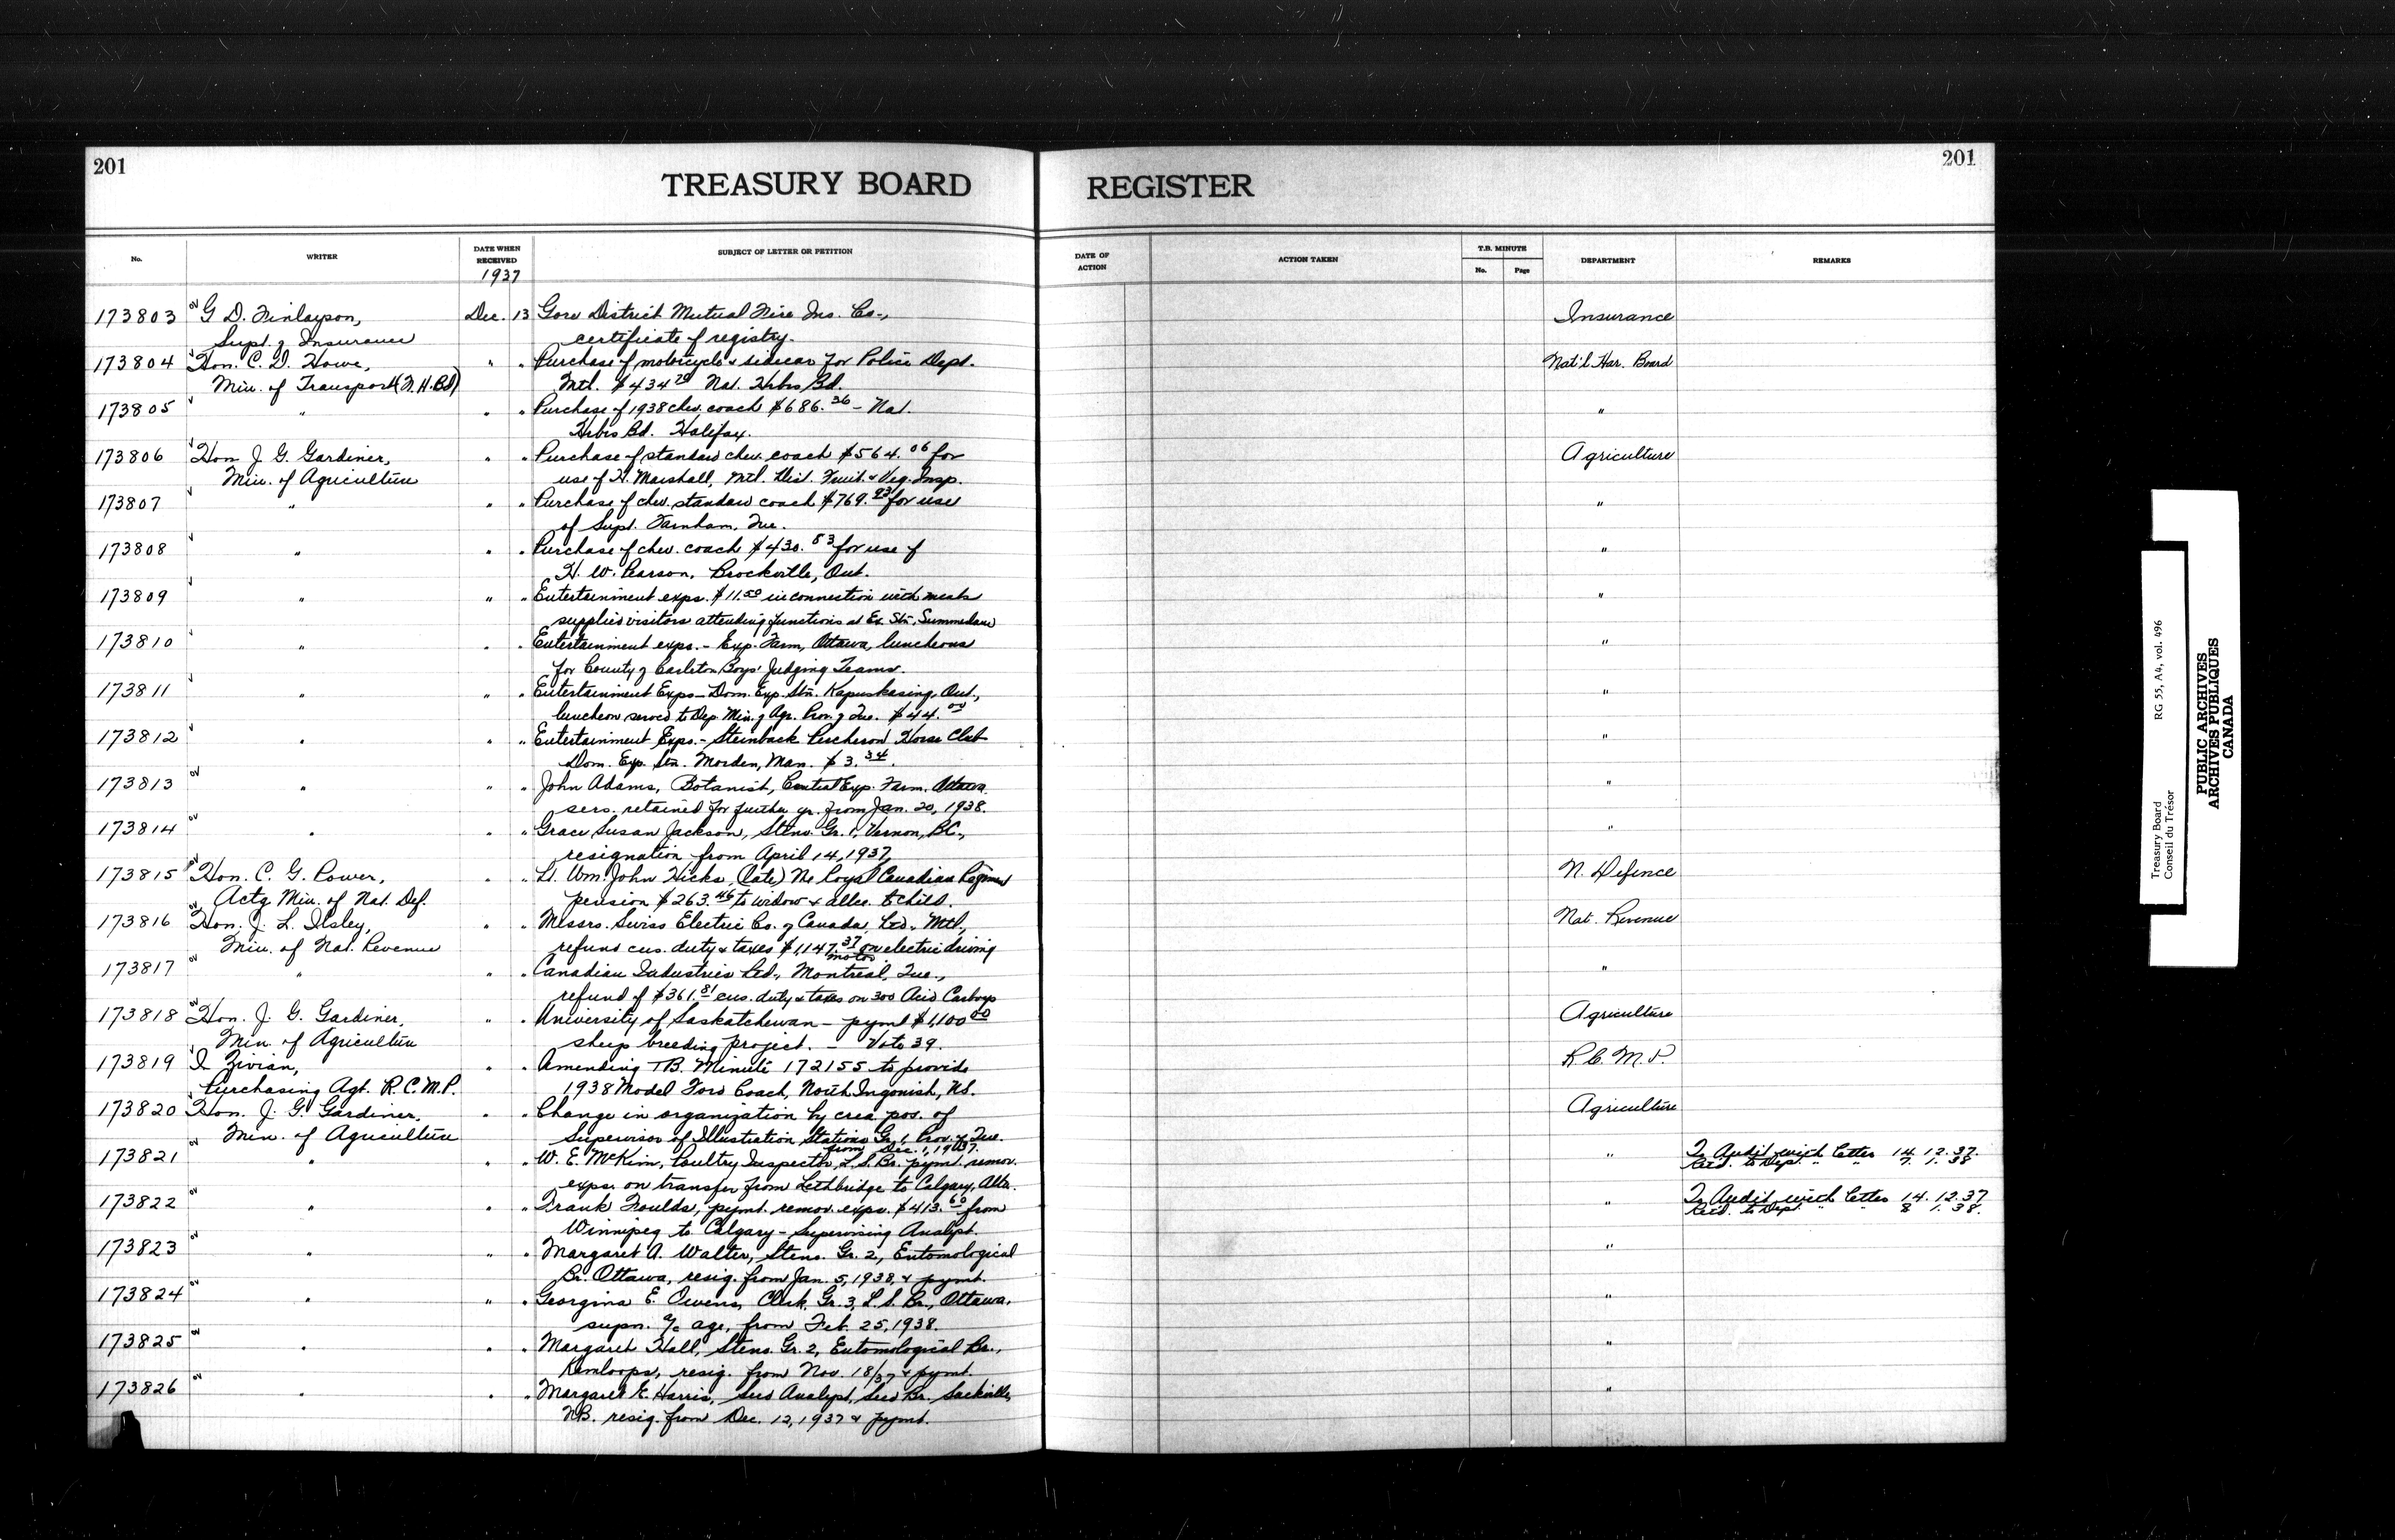 201
TREASURY BOARD REGISTER
201
No. WRITER DATE WHEN RECEIVED SUBJECT OF LETTER OR PETITION DATE OF ACTION ACTION TAKEN T.B. MINUTE No. Page DEPARTMENT REMARKS
1937
173803 G D. Finlayson, Dec. 13 Gore District Mutual Fire Ins. Co., Insurance
Supt. of Insurance certificate of registry.
173804 Hon. C. D. Howe, " " Purchase of motorcycle & sidecar for Police Dept. Nat'l Har. Board
Min. of Transport (N.H.Bd) Mtl. $434.70 Nat. Hrbs Bd.
173805 " " " Purchase of 1938 chev. coach $686.36 - Nat. "
Hrbs Bd. Halifax.
173806 Hon J. G. Gardiner, " " Purchase of standard chev. coach $564.06 for Agriculture
Min. of Agriculture use of H. Marshall, Mtl. Dist. Fruit & Veg. Insp.
173807 " " " Purchase of chev. standard coach $769.93 for use "
of Supt. Farnham, Que.
173808 " " " Purchase of chev. coach $430.83 for use of "
H. W. Pearson, Brockville, Ont.
173809 " " " Entertainment exps. $11.50 in connection with meals "
supplied visitors attending functions at Ex. Stn. Summerland
173810 " " " Entertainment exps. - Exp. Farm, Ottawa, luncheons "
for County of Carleton Boys' Judging Teams.
173811 " " " Entertainment Exps - Dom. Exp. Stn. Kapuskasing, Ont., "
luncheon served to Dep. Min. of Agr. Prov. of Que. $44.00
173812 " " " Entertainment Exps. - Steinback Percheron Horse Club "
Dom. Exp. Stn. Morden, Man. $3.34.
173813 " " " John Adams, Botanist, Central Exp. Farm. Ottawa "
sers. retained for further yr. from Jan. 20, 1938.
173814 " " " Grace Susan Jackson, Steno. Gr. 1, Vernon, B.C., "
resignation from April 14, 1937.
173815 Hon. C. G. Power, " " Lt. Wm. John Hicks (late) The Royal Canadian Regiment N. Defence
Actg Min. of Nat. Def. pension $263.46 to widow & allce. to child.
173816 Hon. J. L. Ilsley, " " Messrs. Swiss Electric Co. of Canada, Ltd., Mtl., Nat. Revenue
Min. of Nat. Revenue refund cus. duty & taxes $1,147.37 on electric driving
motor.
173817 " " " Canadian Industries Ltd., Montreal, Que., "
refund of $361.81 cus. duty & taxes on 300 Acid Carboys
173818 Hon. J. G. Gardiner, " " University of Saskatchewan - pymt $1,100.00 Agriculture
Min. of Agriculture sheep breeding project. - Vote 39.
173819 I Zivian, " " Amending TB. Minute 172155 to provide R.C.M.P.
Purchasing Agt. R.C.M.P. 1938 Model Ford Coach, North Ingonish, N.S.
173820 Hon. J. G. Gardiner, " " Change in organization by crea. pos. of Agriculture
Min. of Agriculture Supervisor of Illustration Stations Gr. 1 Prov. of Que.
from Dec. 1, 1937.
173821 " " " W. E. McKim, Poultry Inspector, L.S. Br. pymt. remov. " To Audit with letter 14.12.37.
Retd. to Dept. " " 7. 1. 38
exps. on transfer from Lethbridge to Calgary, Alta.
173822 " " " Frank Foulds, pymt. remov. exps. $413.60 from " To Audit with letter 14.12.37
Retd. to Dept. " " 8 1. 38.
Winnipeg to Calgary - Supervising Analyst.
173823 " " " Margaret A. Walter, Steno. Gr. 2, Entomological "
Br. Ottawa, resig. from Jan. 5, 1938, & pymt.
173824 " " " Georgina E. Owens, Clerk, Gr. 3, L.S. Br., Ottawa. "
supn. a/c age, from Feb. 25, 1938.
173825 " " " Margaret Hall, Steno. Gr. 2, Entomological Br., "
Kamloops, resig. from Nov. 18/37 & pymt.
173826 " " " Margaret E. Harris, Seed Analyst, Seed Br. Sackville, "
N.B. resig. from Dec. 12, 1937 & pymt.
Treasury Board RG 55, A4, vol. 496
Conseil du Trésor
PUBLIC ARCHIVES
ARCHIVES PUBLIQUES
CANADA